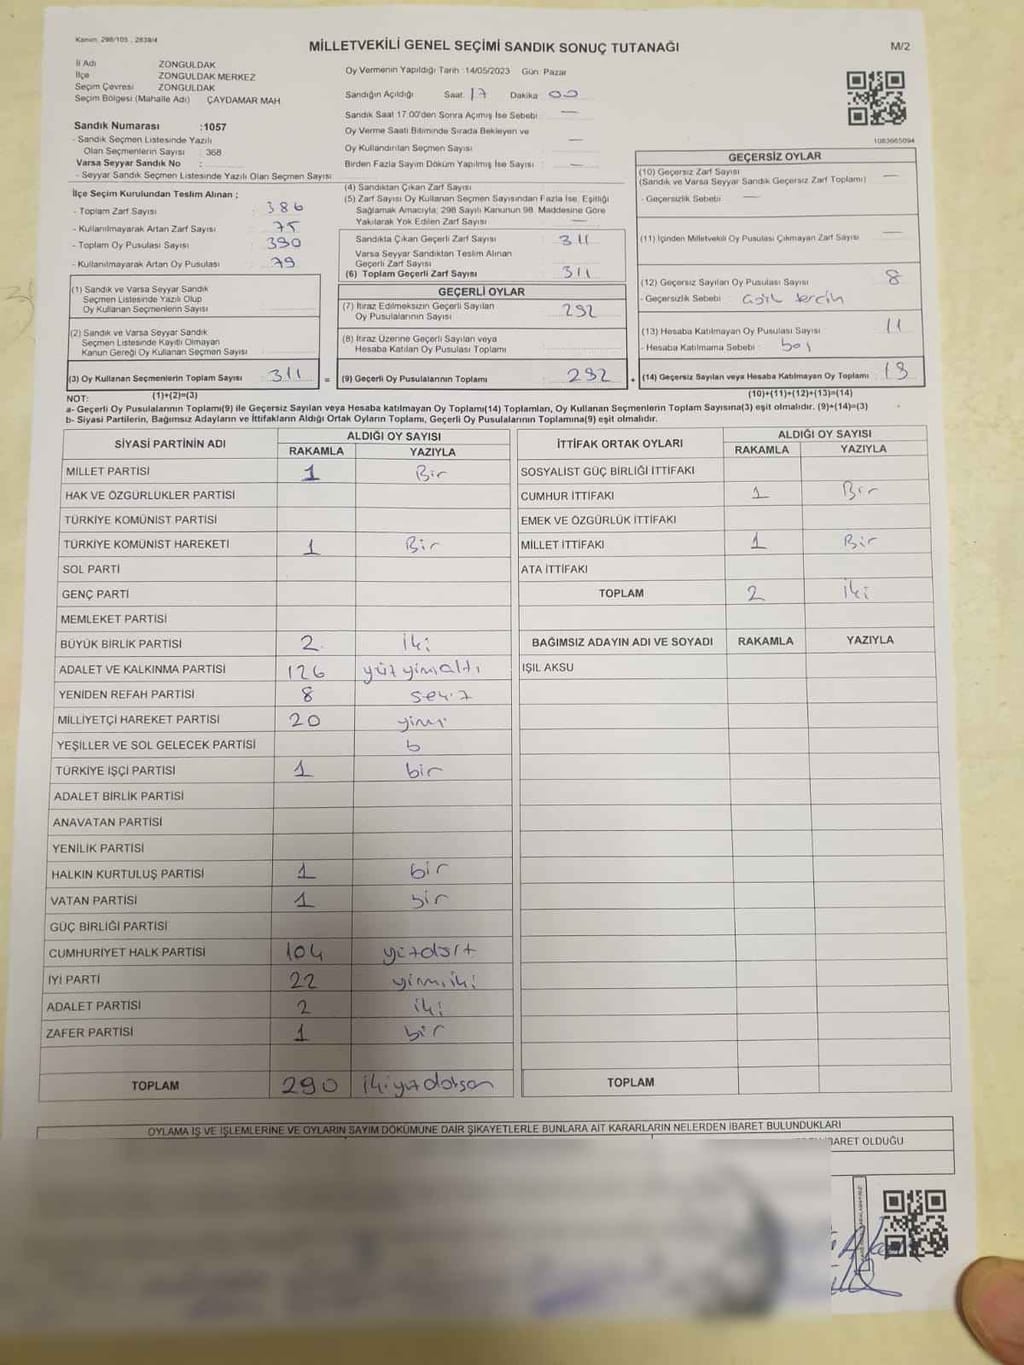 Kanun: 298/105 , 2839/4
MİLLETVEKİLİ GENEL SEÇİMİ SANDIK SONUÇ TUTANAĞI
M/2
İl Adı ZONGULDAK
İlçe ZONGULDAK MERKEZ
Seçim Çevresi ZONGULDAK
Seçim Bölgesi (Mahalle Adı) ÇAYDAMAR MAH
Sandık Numarası :1057
- Sandık Seçmen Listesinde Yazılı
Olan Seçmenlerin Sayısı : 368
Varsa Seyyar Sandık No :
- Seyyar Sandık Seçmen Listesinde Yazılı Olan Seçmen Sayısı
Oy Vermenin Yapıldığı Tarih :14/05/2023 Gün: Pazar
Sandığın Açıldığı Saat 17 Dakika 00
Sandık Saat 17.00'den Sonra Açımış İse Sebebi —
Oy Verme Saati Bitiminde Sırada Bekleyen ve
Oy Kullandırılan Seçmen Sayısı —
Birden Fazla Sayım Döküm Yapılmış İse Sayısı —
1083665094
İlçe Seçim Kurulundan Teslim Alınan ;
- Toplam Zarf Sayısı 386
- Kullanılmayarak Artan Zarf Sayısı 75
- Toplam Oy Pusulası Sayısı 390
- Kullanılmayarak Artan Oy Pusulası 79
(1) Sandık ve Varsa Seyyar Sandık
Seçmen Listesinde Yazılı Olup
Oy Kullanan Seçmenlerin Sayısı
(2) Sandık ve Varsa Seyyar Sandık
Seçmen Listesinde Kayıtlı Olmayan
Kanun Gereği Oy Kullanan Seçmen Sayısı
(3) Oy Kullanan Seçmenlerin Toplam Sayısı 311 =
(4) Sandıktan Çıkan Zarf Sayısı
(5) Zarf Sayısı Oy Kullanan Seçmen Sayısından Fazla İse, Eşitliği
Sağlamak Amacıyla; 298 Sayılı Kanunun 98. Maddesine Göre
Yakılarak Yok Edilen Zarf Sayısı —
Sandıkta Çıkan Geçerli Zarf Sayısı 311
Varsa Seyyar Sandıktan Teslim Alınan
Geçerli Zarf Sayısı
(6) Toplam Geçerli Zarf Sayısı 311
GEÇERLİ OYLAR
(7) İtiraz Edilmeksizin Geçerli Sayılan
Oy Pusulalarının Sayısı 292
(8) İtiraz Üzerine Geçerli Sayılan veya
Hesaba Katılan Oy Pusulası Toplamı
(9) Geçerli Oy Pusulalarının Toplamı 292 +
GEÇERSİZ OYLAR
(10) Geçersiz Zarf Sayısı
(Sandık ve Varsa Seyyar Sandık Geçersiz Zarf Toplamı) —
- Geçersizlik Sebebi —
(11) İçinden Milletvekili Oy Pusulası Çıkmayan Zarf Sayısı —
(12) Geçersiz Sayılan Oy Pusulası Sayısı 8
- Geçersizlik Sebebi
(13) Hesaba Katılmayan Oy Pusulası Sayısı 11
- Hesaba Katılmama Sebebi boş
(14) Geçersiz Sayılan veya Hesaba Katılmayan Oy Toplamı 19
NOT: (1)+(2)=(3) (10)+(11)+(12)+(13)=(14)
a- Geçerli Oy Pusulalarının Toplamı(9) ile Geçersiz Sayılan veya Hesaba katılmayan Oy Toplamı(14) Toplamları, Oy Kullanan Seçmenlerin Toplam Sayısına(3) eşit olmalıdır. (9)+(14)=(3)
b- Siyasi Partilerin, Bağımsız Adayların ve İttifakların Aldığı Ortak Oyların Toplamı, Geçerli Oy Pusulalarının Toplamına(9) eşit olmalıdır.
SİYASİ PARTİNİN ADI ALDIĞI OY SAYISI
RAKAMLA YAZIYLA
MİLLET PARTİSİ 1 Bir
HAK VE ÖZGÜRLÜKLER PARTİSİ
TÜRKİYE KOMÜNİST PARTİSİ
TÜRKİYE KOMÜNİST HAREKETİ 1 Bir
SOL PARTİ
GENÇ PARTİ
MEMLEKET PARTİSİ
BÜYÜK BİRLİK PARTİSİ 2 iki
ADALET VE KALKINMA PARTİSİ 126 yüzyirmialtı
YENİDEN REFAH PARTİSİ 8 sekiz
MİLLİYETÇİ HAREKET PARTİSİ 20 yirmi
YEŞİLLER VE SOL GELECEK PARTİSİ b
TÜRKİYE İŞÇİ PARTİSİ 1 bir
ADALET BİRLİK PARTİSİ
ANAVATAN PARTİSİ
YENİLİK PARTİSİ
HALKIN KURTULUŞ PARTİSİ 1 bir
VATAN PARTİSİ 1 bir
GÜÇ BİRLİĞİ PARTİSİ
CUMHURİYET HALK PARTİSİ 104 yüzdört
İYİ PARTİ 22 yirmiiki
ADALET PARTİSİ 2 iki
ZAFER PARTİSİ 1 bir
TOPLAM 290 ikiyüzdoksan
İTTİFAK ORTAK OYLARI ALDIĞI OY SAYISI
RAKAMLA YAZIYLA
SOSYALİST GÜÇ BİRLİĞİ İTTİFAKI
CUMHUR İTTİFAKI 1 Bir
EMEK VE ÖZGÜRLÜK İTTİFAKI
MİLLET İTTİFAKI 1 Bir
ATA İTTİFAKI
TOPLAM 2 iki
BAĞIMSIZ ADAYIN ADI VE SOYADI RAKAMLA YAZIYLA
IŞIL AKSU
TOPLAM
OYLAMA İŞ VE İŞLEMLERİNE VE OYLARIN SAYIM DÖKÜMÜNE DAİR ŞİKAYETLERLE BUNLARA AİT KARARLARIN NELERDEN İBARET BULUNDUKLARI
BARET OLDUĞU